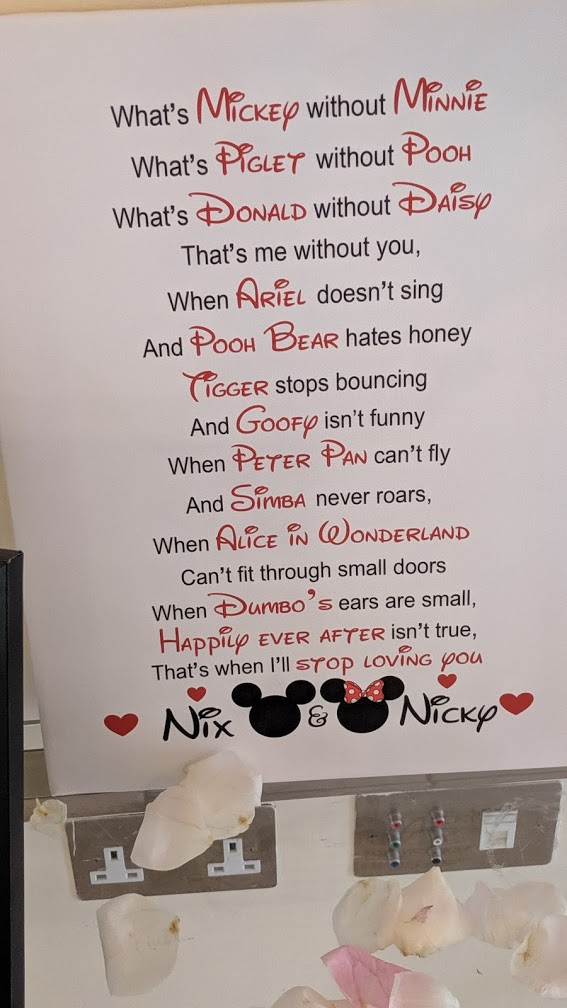 What's Mickey without Minnie
What's Piglet without Pooh
What's Donald without Daisy
That's me without you,
When Ariel doesn't sing
And Pooh Bear hates honey
Tigger stops bouncing
And Goofy isn't funny
When Peter Pan can't fly
And Simba never roars,
When Alice in Wonderland
Can't fit through small doors
When Dumbo's ears are small,
Happily ever after isn't true,
That's when I'll stop loving you
Nix & Nicky